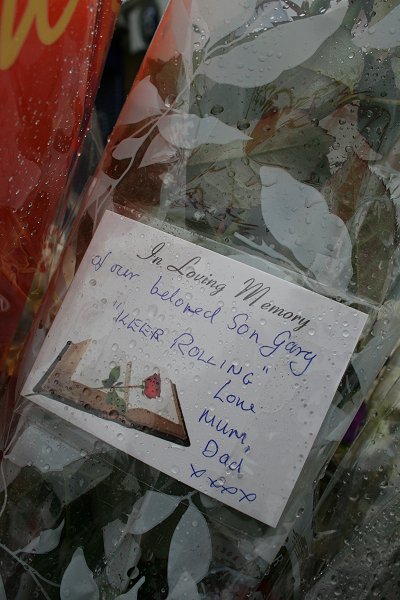 In Loving Memory
of our beloved Son Gary
"KEEP ROLLING"
Love
Mum,
Dad
xxxx